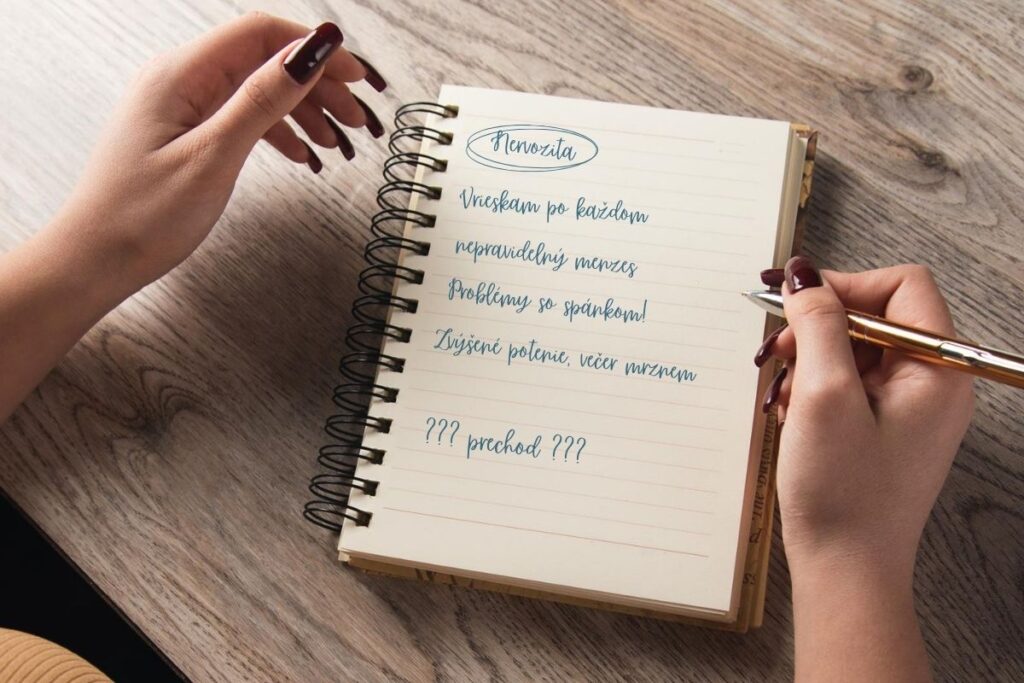 Nervozita
Vrieskam po každom
nepravidelný menzes
Problémy so spánkom!
Zvýšené potenie, večer mrznem
??? prechod ???